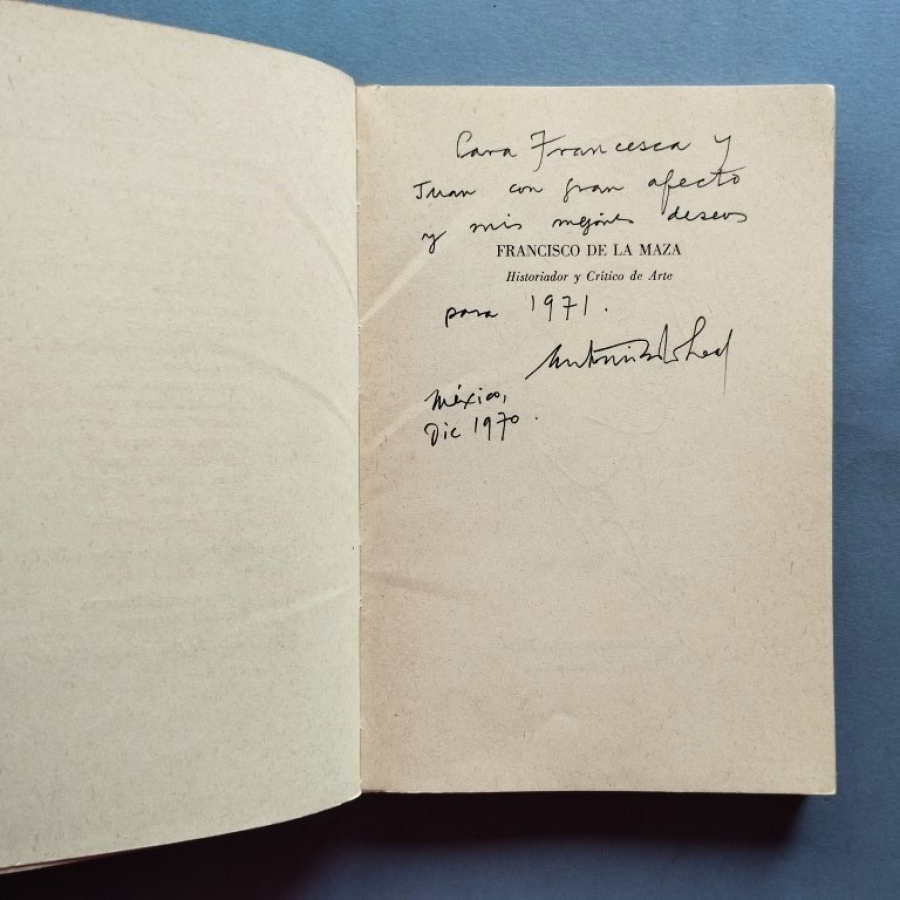 Cara Francesca y
Juan con gran afecto
y mis mejores deseos
FRANCISCO DE LA MAZA
Historiador y Crítico de Arte
para 1971.
México,
Dic 1970.